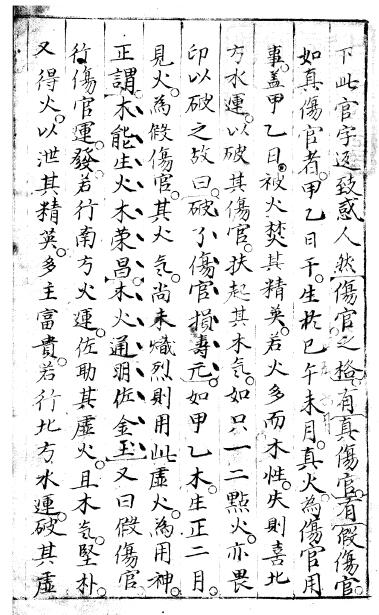 下此官字迳致惑人然傷官之格有真傷官有假傷官
如真傷官者甲乙日干生於巳午未月真火為傷官用
事盖甲乙日被火焚其精英若火多而木性失則喜北
方水運以破其傷官扶起其木氣如只一二點火亦畏
印以破之故曰破了傷官損壽元如甲乙木生正二月
見火為假傷官其火氣尚未熾烈則用此虛火為用神
正謂木能生火木荣昌木火通明佐金玉又曰假傷官
行傷官運發若行南方火運佐助其虛火且木氣堅朴
又得火以泄其精英多主富貴若行北方水運破其虛